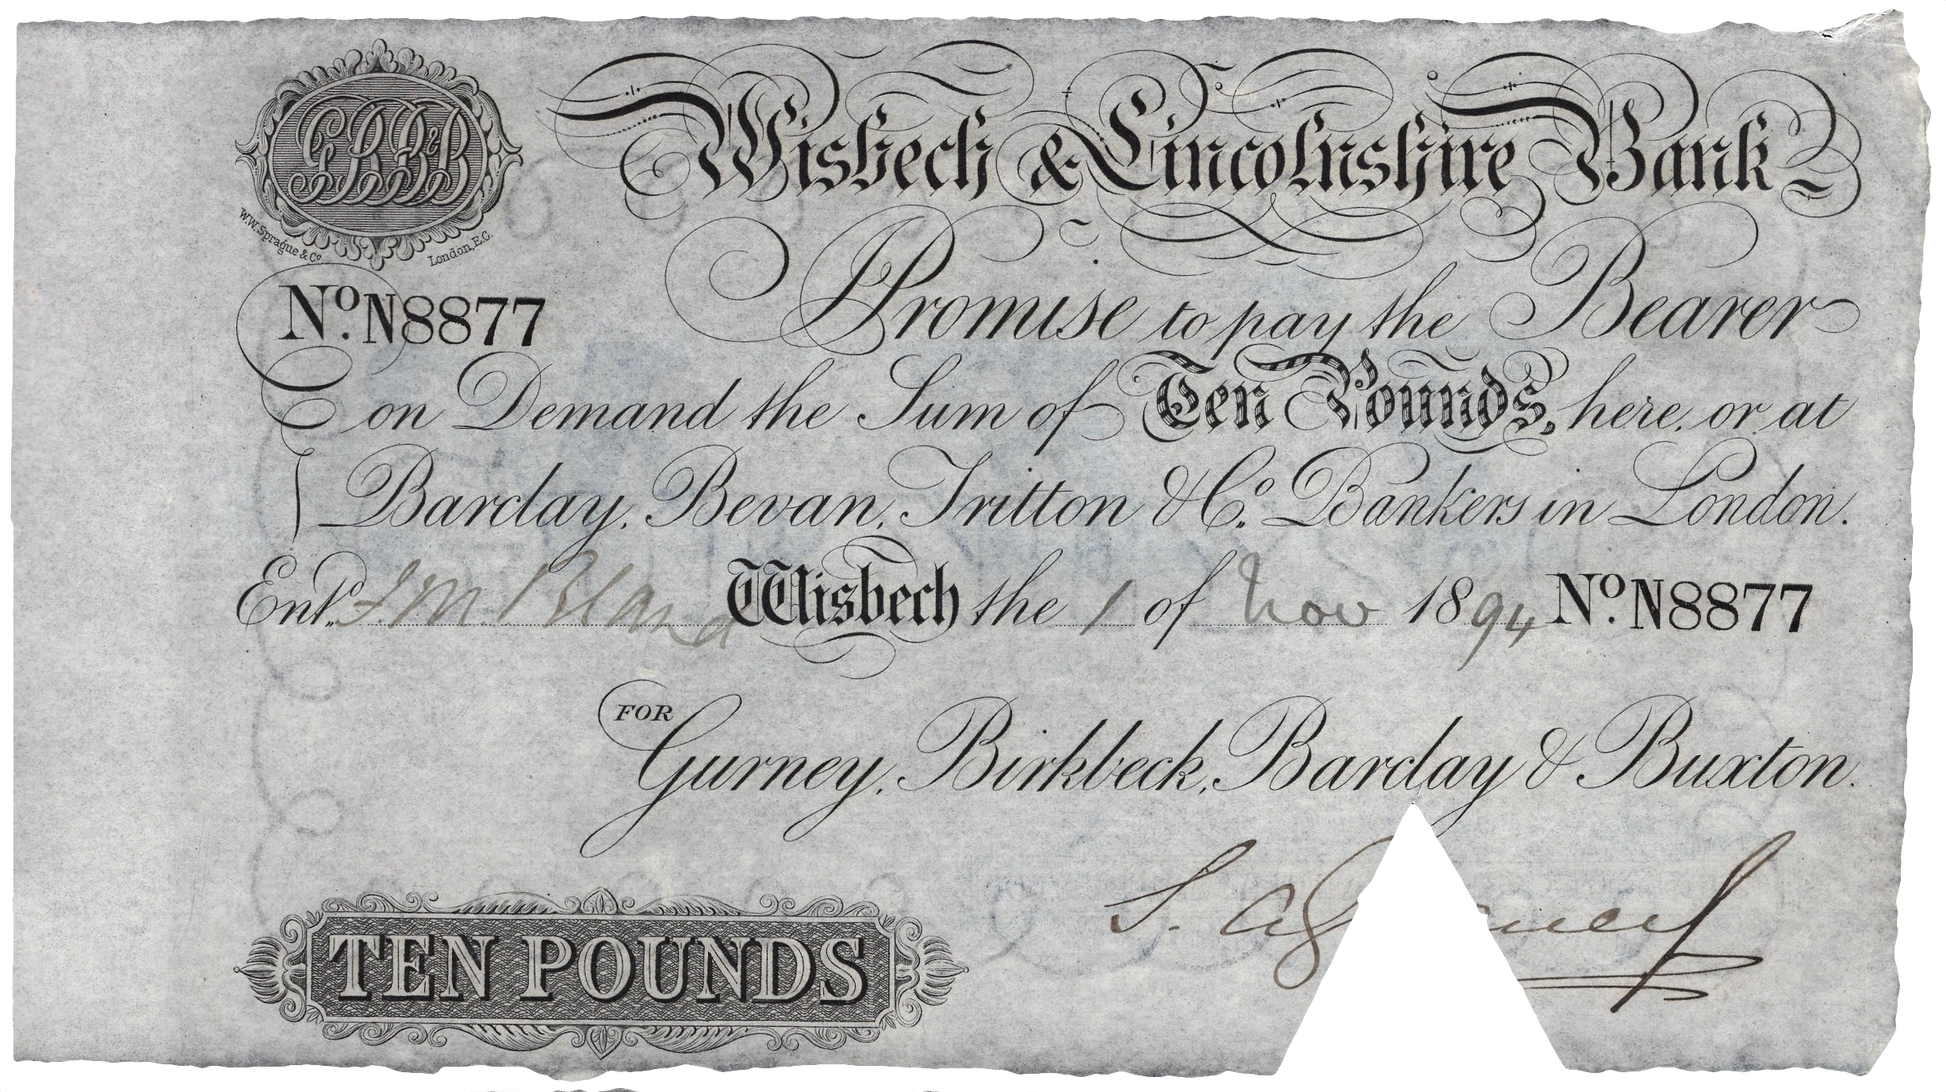 GBB&B
W.W. Sprague & Co London, E.C.
Wisbech & Lincolnshire Bank
No. N8877 I Promise to pay the Bearer
on Demand the Sum of Ten Pounds, here, or at
Barclay, Bevan, Tritton & Co. Bankers in London.
Entd. J. M. Bland Wisbech the 1 of Nov 1894 No. N8877
FOR
Gurney, Birkbeck, Barclay & Buxton.
TEN POUNDS